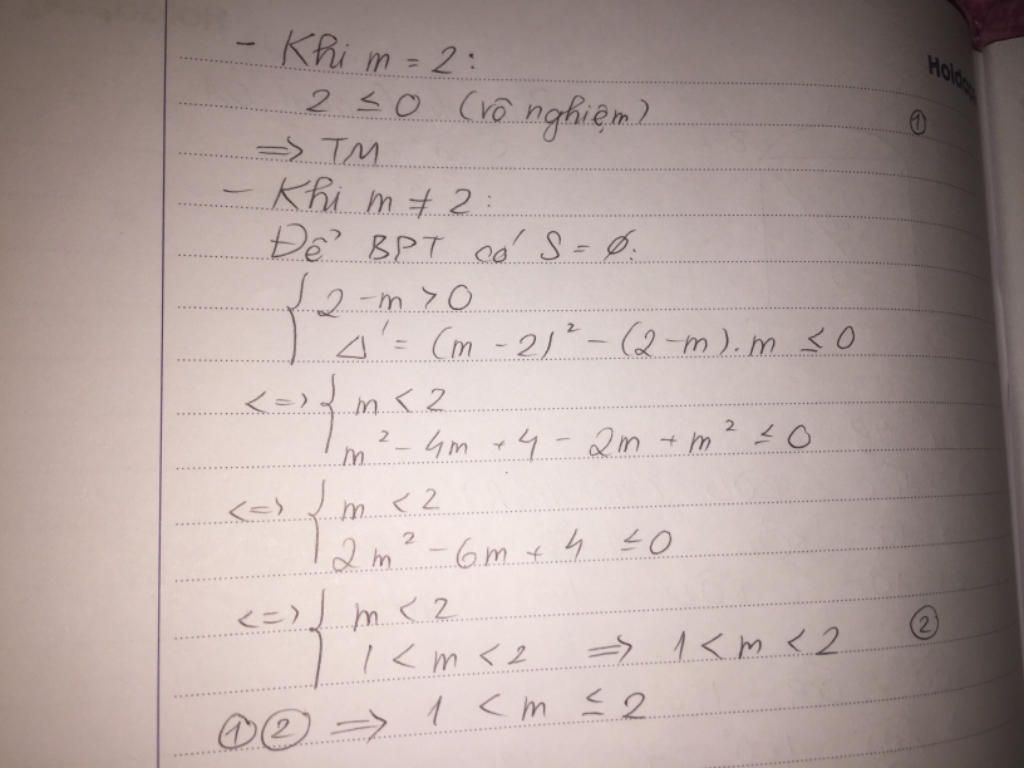 - Khi m = 2:
Holdo
2 ≤ 0 (vô nghiệm) ①
=> TM
- Khi m ≠ 2:
Để BPT có S = ∅:
{ 2 - m > 0
Δ' = (m - 2)² - (2 - m).m ≤ 0
<=> { m < 2
m² - 4m + 4 - 2m + m² ≤ 0
<=> { m < 2
2m² - 6m + 4 ≤ 0
<=> { m < 2
1 < m < 2 => 1 < m < 2 ②
① ② => 1 < m ≤ 2